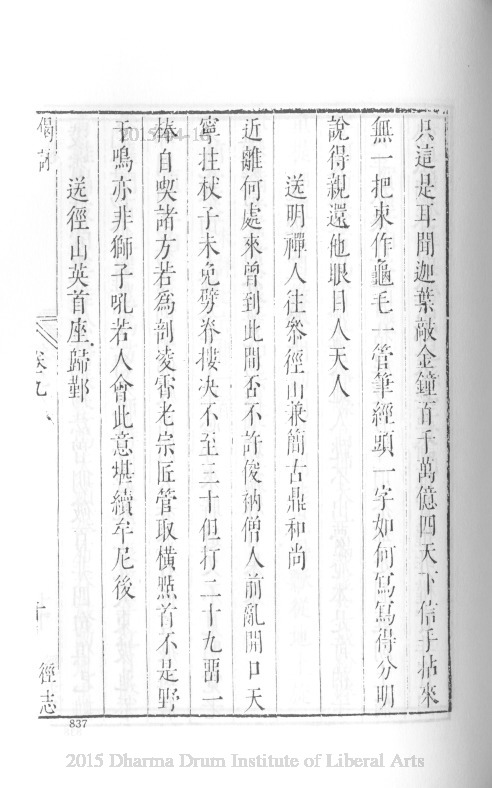 只這是耳聞迦葉敲金鐘百千萬億四天下信手拈來
無一把束作龜毛一管筆經頭一字如何寫寫得分明
說得親還他眼目人天人
送明禪人往叅徑山兼簡古鼎和尚
近離何處來曾到此間否不許俊衲僧人前亂開口天
寧拄杖子未免劈脊摟決不至三十但打二十九畱一
棒自喫諸方若爲剖凌霄老宗匠管取橫點首不是野
干鳴亦非獅子吼若人會此意堪續牟尼後
送徑山英首座歸鄞
偈讃
卷九
十
徑志
837
2015 Dharma Drum Institute of Liberal Arts